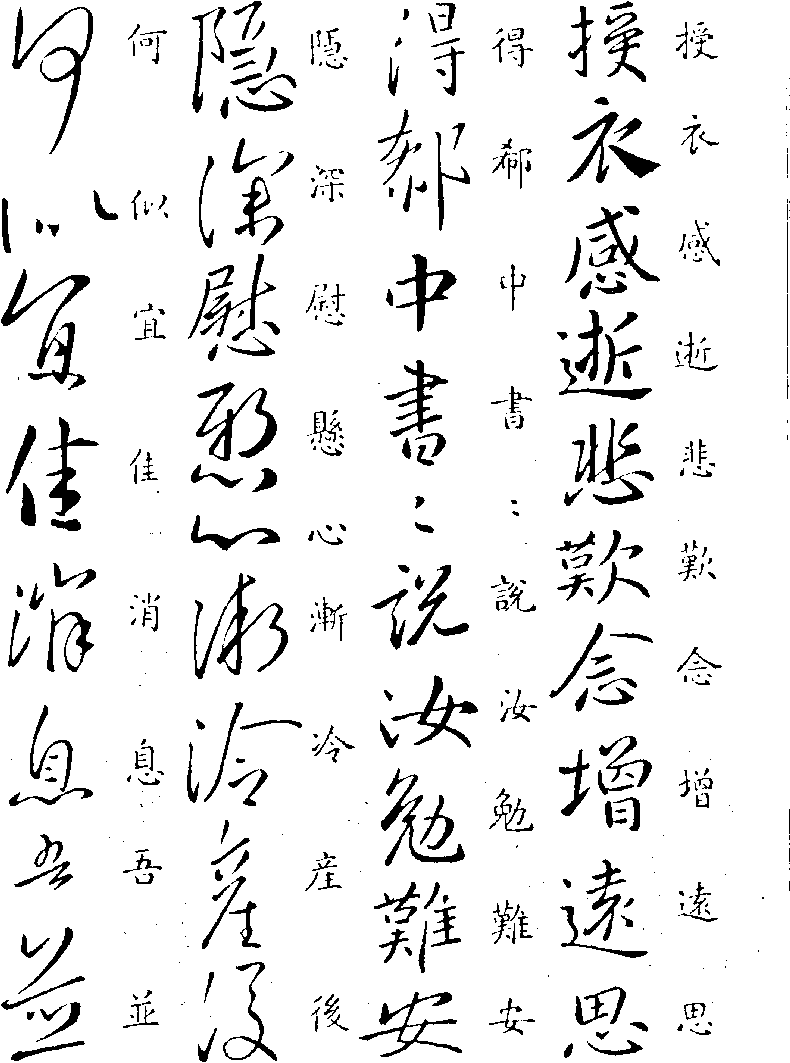 授衣感逝悲歎念增遠思
授衣感逝悲歎念增遠思
得郗中書〻說汝勉難安
得郗中書〻說汝勉難安
隱深慰懸心漸冷産後
隱深慰懸心漸冷産後
何似宜佳消息吾並
何似宜佳消息吾並